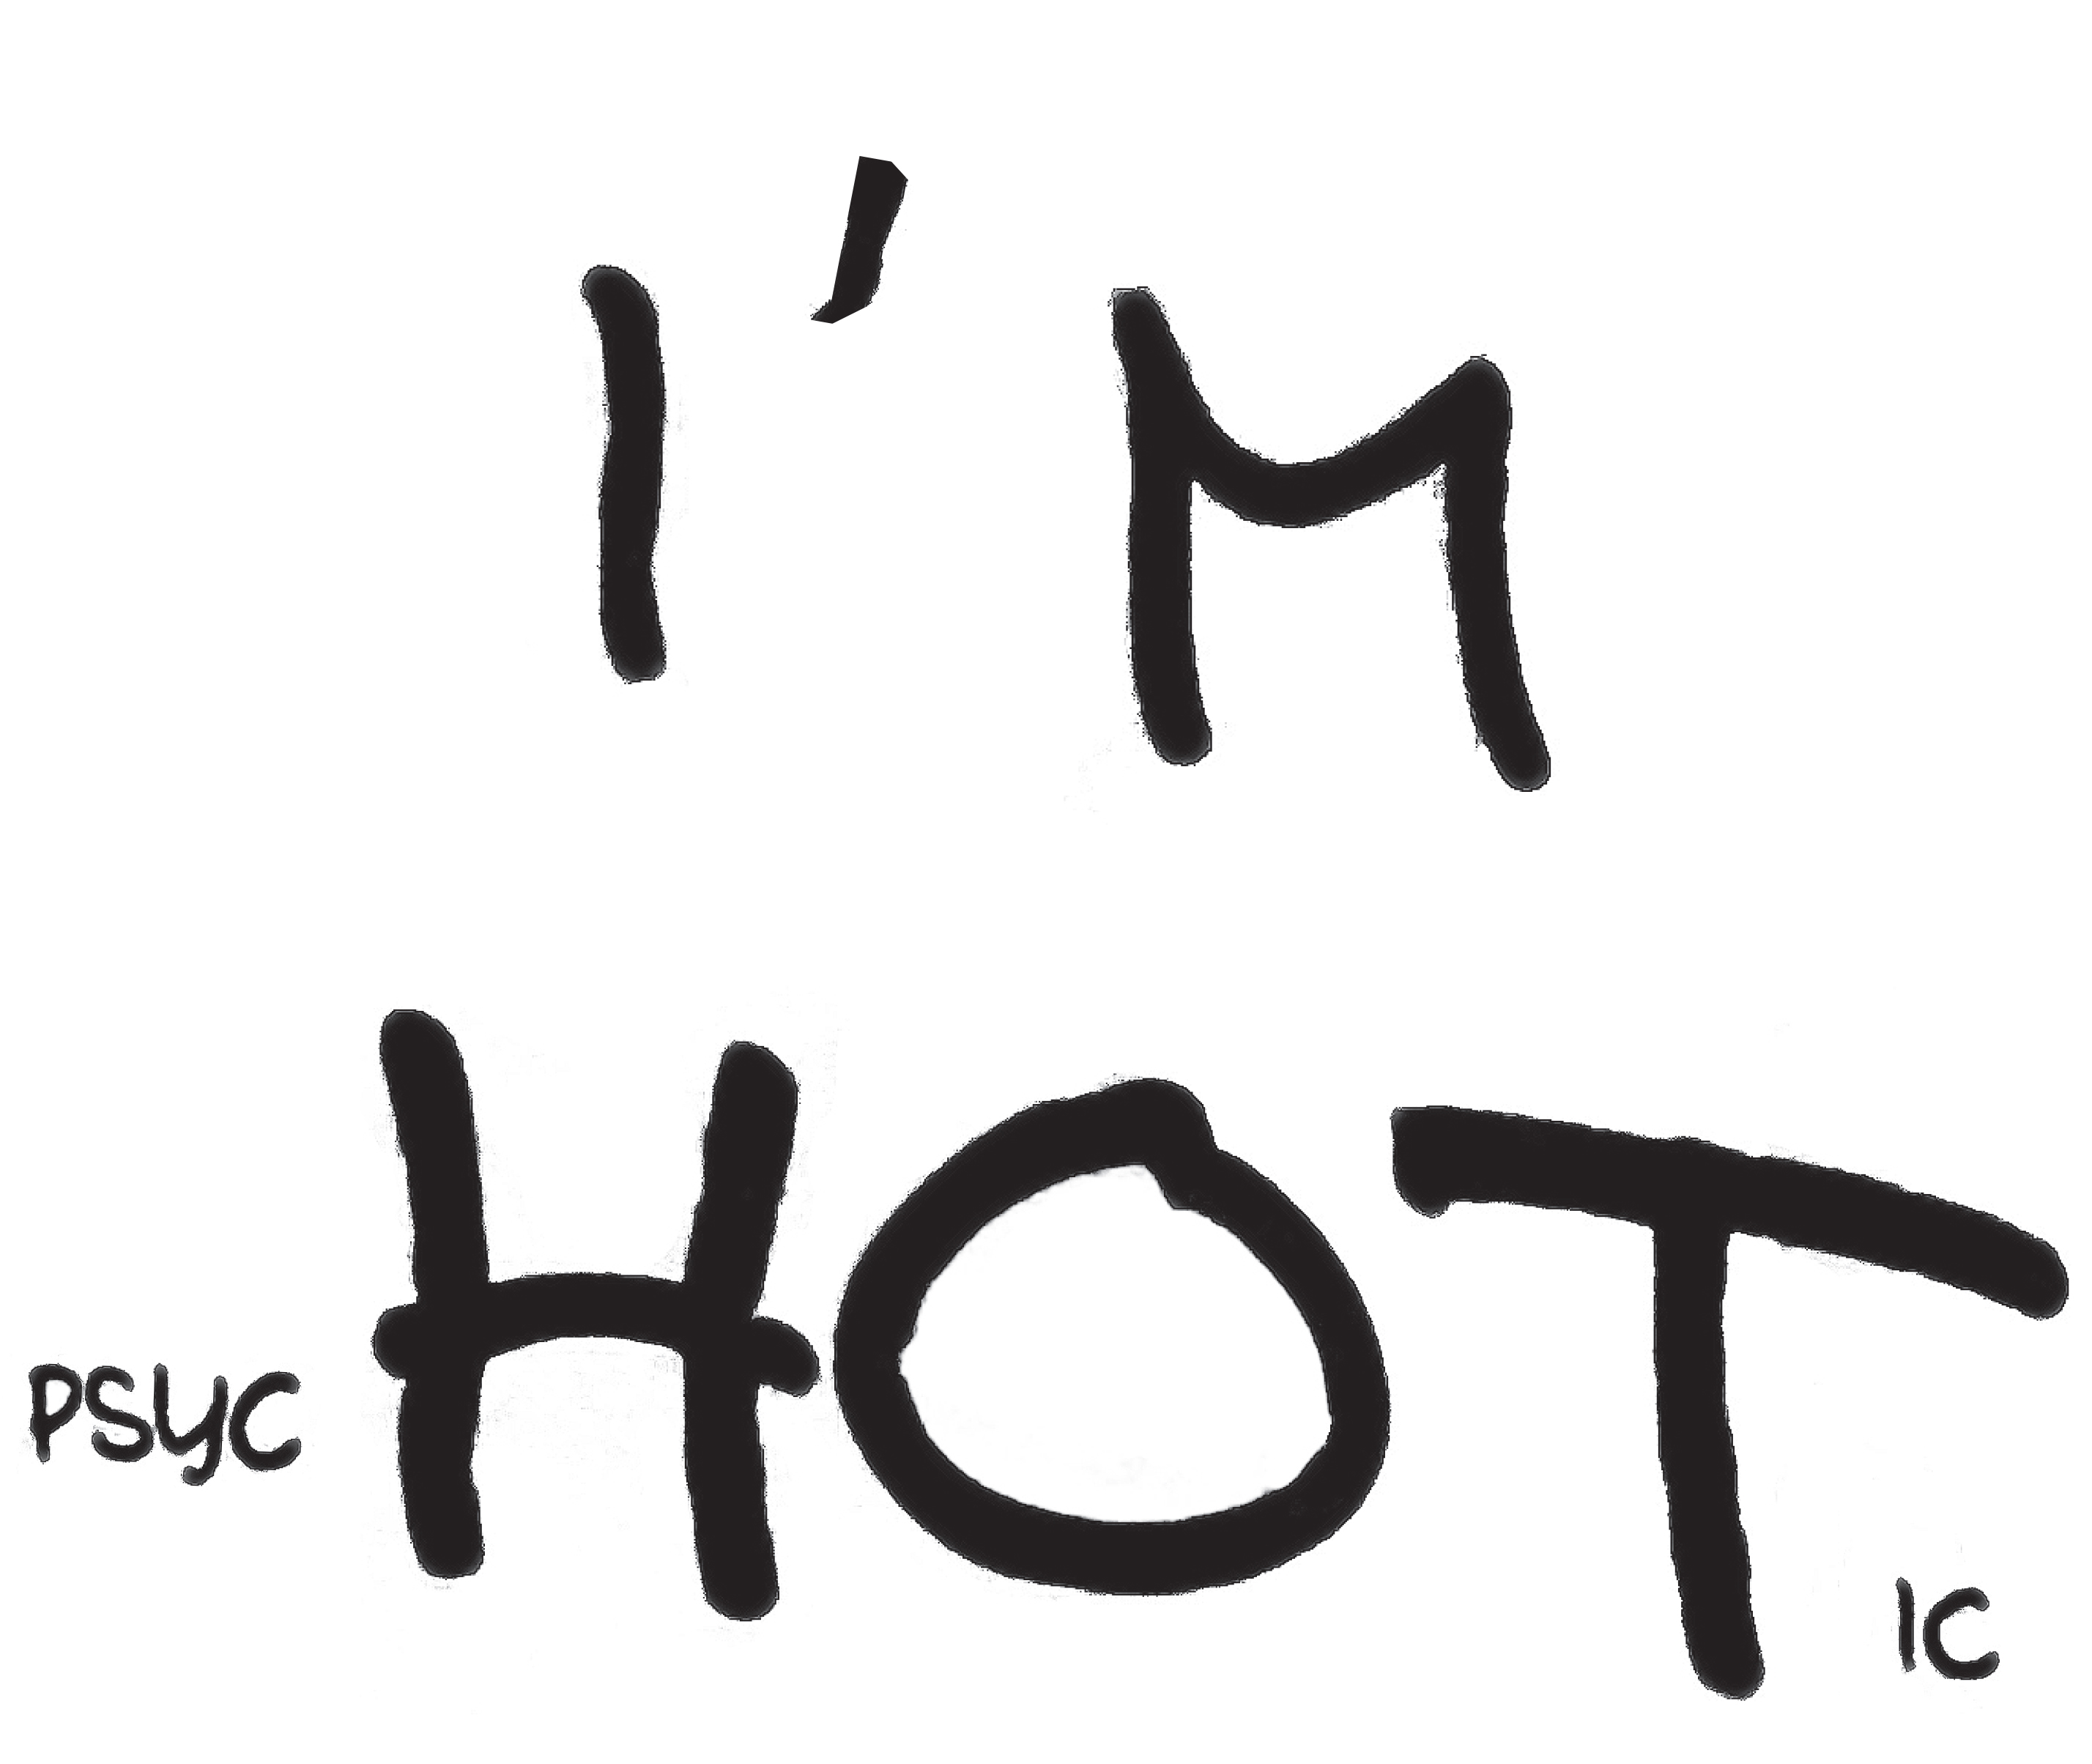 I'M
PSYCHOTIC